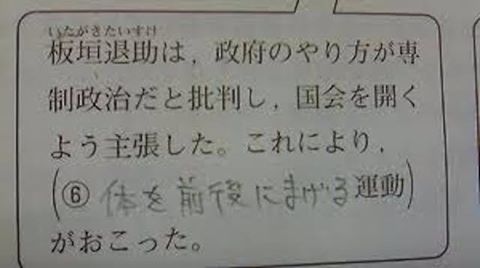 いたがきたいすけ
板垣退助は，政府のやり方が専
制政治だと批判し，国会を開く
よう主張した。これにより，
(⑥ 体を前後にまげる運動)
がおこった。